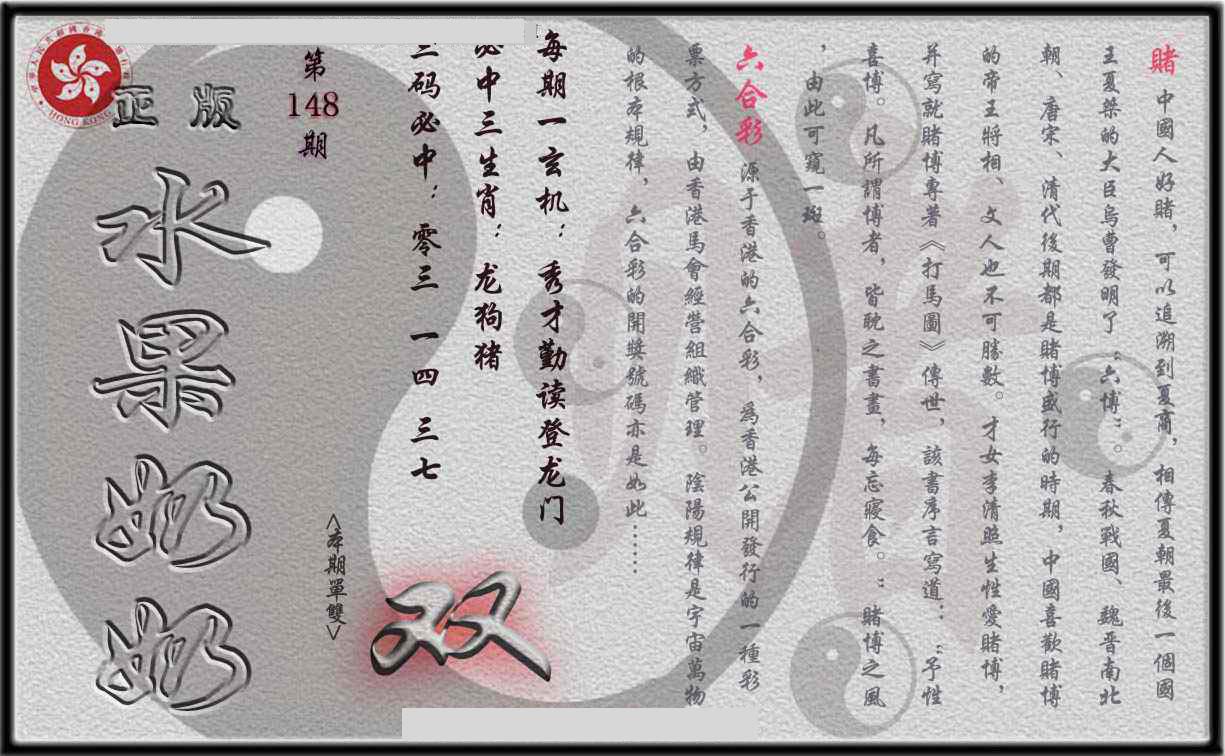 賭 中國人好賭，可以追溯到夏商，相傳夏朝最後一個國
王夏桀的大臣烏曹發明了“六博”。春秋戰國、魏晋南北
朝、唐宋、清代後期都是賭博盛行的時期，中國喜歡賭博
的帝王將相、文人也不可勝數。才女李清照生性愛賭博，
并寫就賭博專著《打馬圖》傳世，該書序言寫道：“予性
喜博。凡所謂博者，皆耽之書畫，每忘寢食。”賭博之風
，由此可窺一斑。
六合彩 源于香港的六合彩，為香港公開發行的一種彩
票方式，由香港馬會經營組織管理。陰陽規律是宇宙萬物
的根本規律，六合彩的開獎號碼亦是如此……
每期一玄机：秀才勤读登龙门
必中三生肖：龙狗猪
三码必中：零三 一四 三七
<本期單雙>
双
第
148
期
正版
水果奶奶
HONG KONG